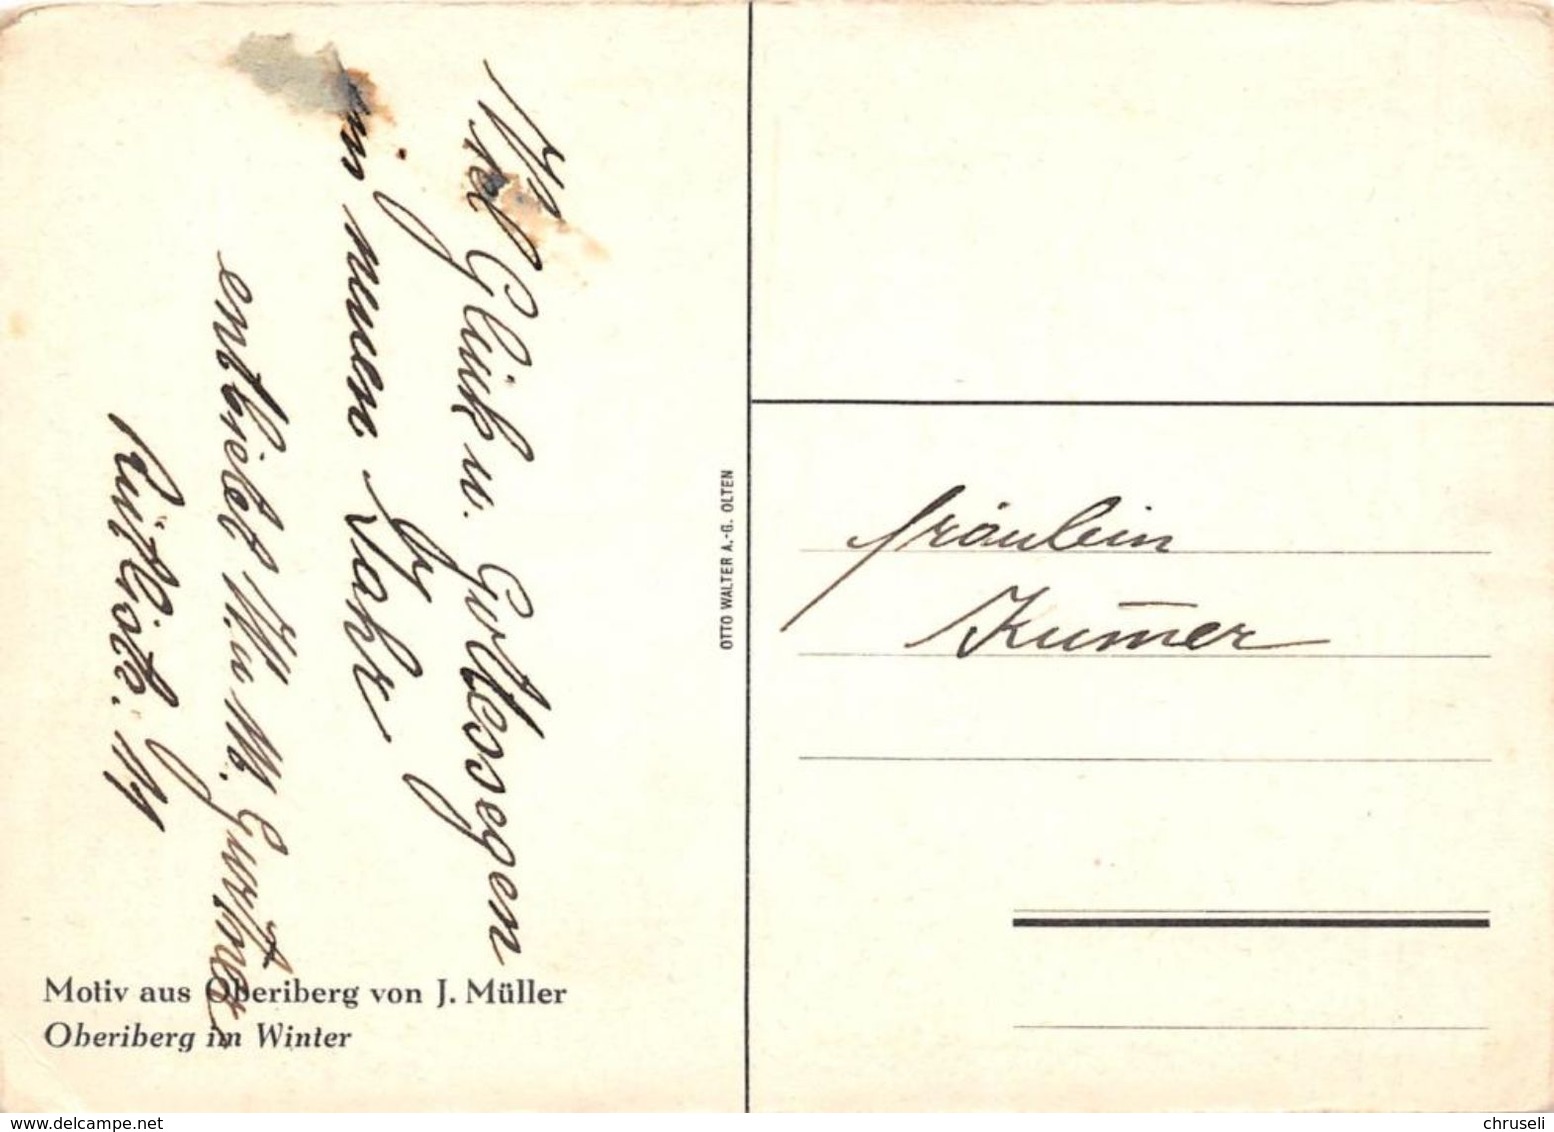 Viel Glück u. Gottessegen
im neuen Jahr
entbietet
M. Gurtner
Rütlistr. 14
Motiv aus Oberiberg von J. Müller
Oberiberg im Winter
OTTO WALTER A.-G. OLTEN
fräulein
Kum̅er
www.delcampe.net
chruseli